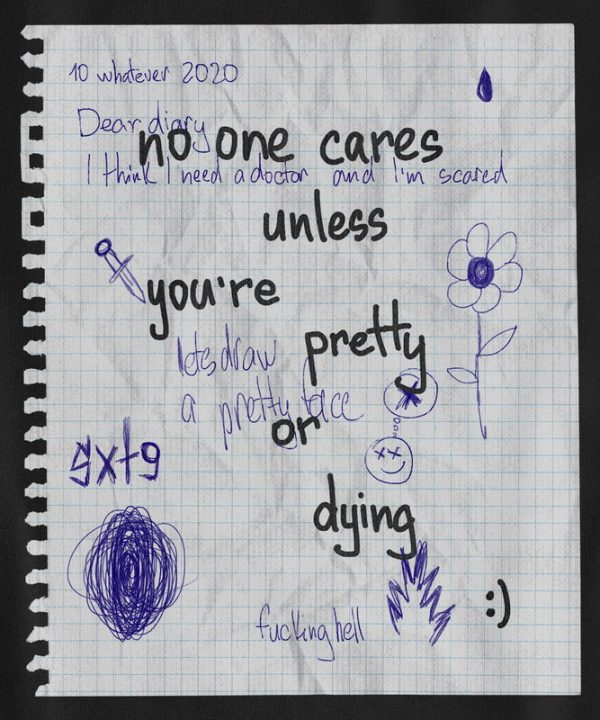 10 whatever 2020
Dear diary
no one cares
I think I need a doctor and I'm scared
unless
you're
pretty
lets draw
a pretty face
or
sxtg
dying
:)
fucking hell